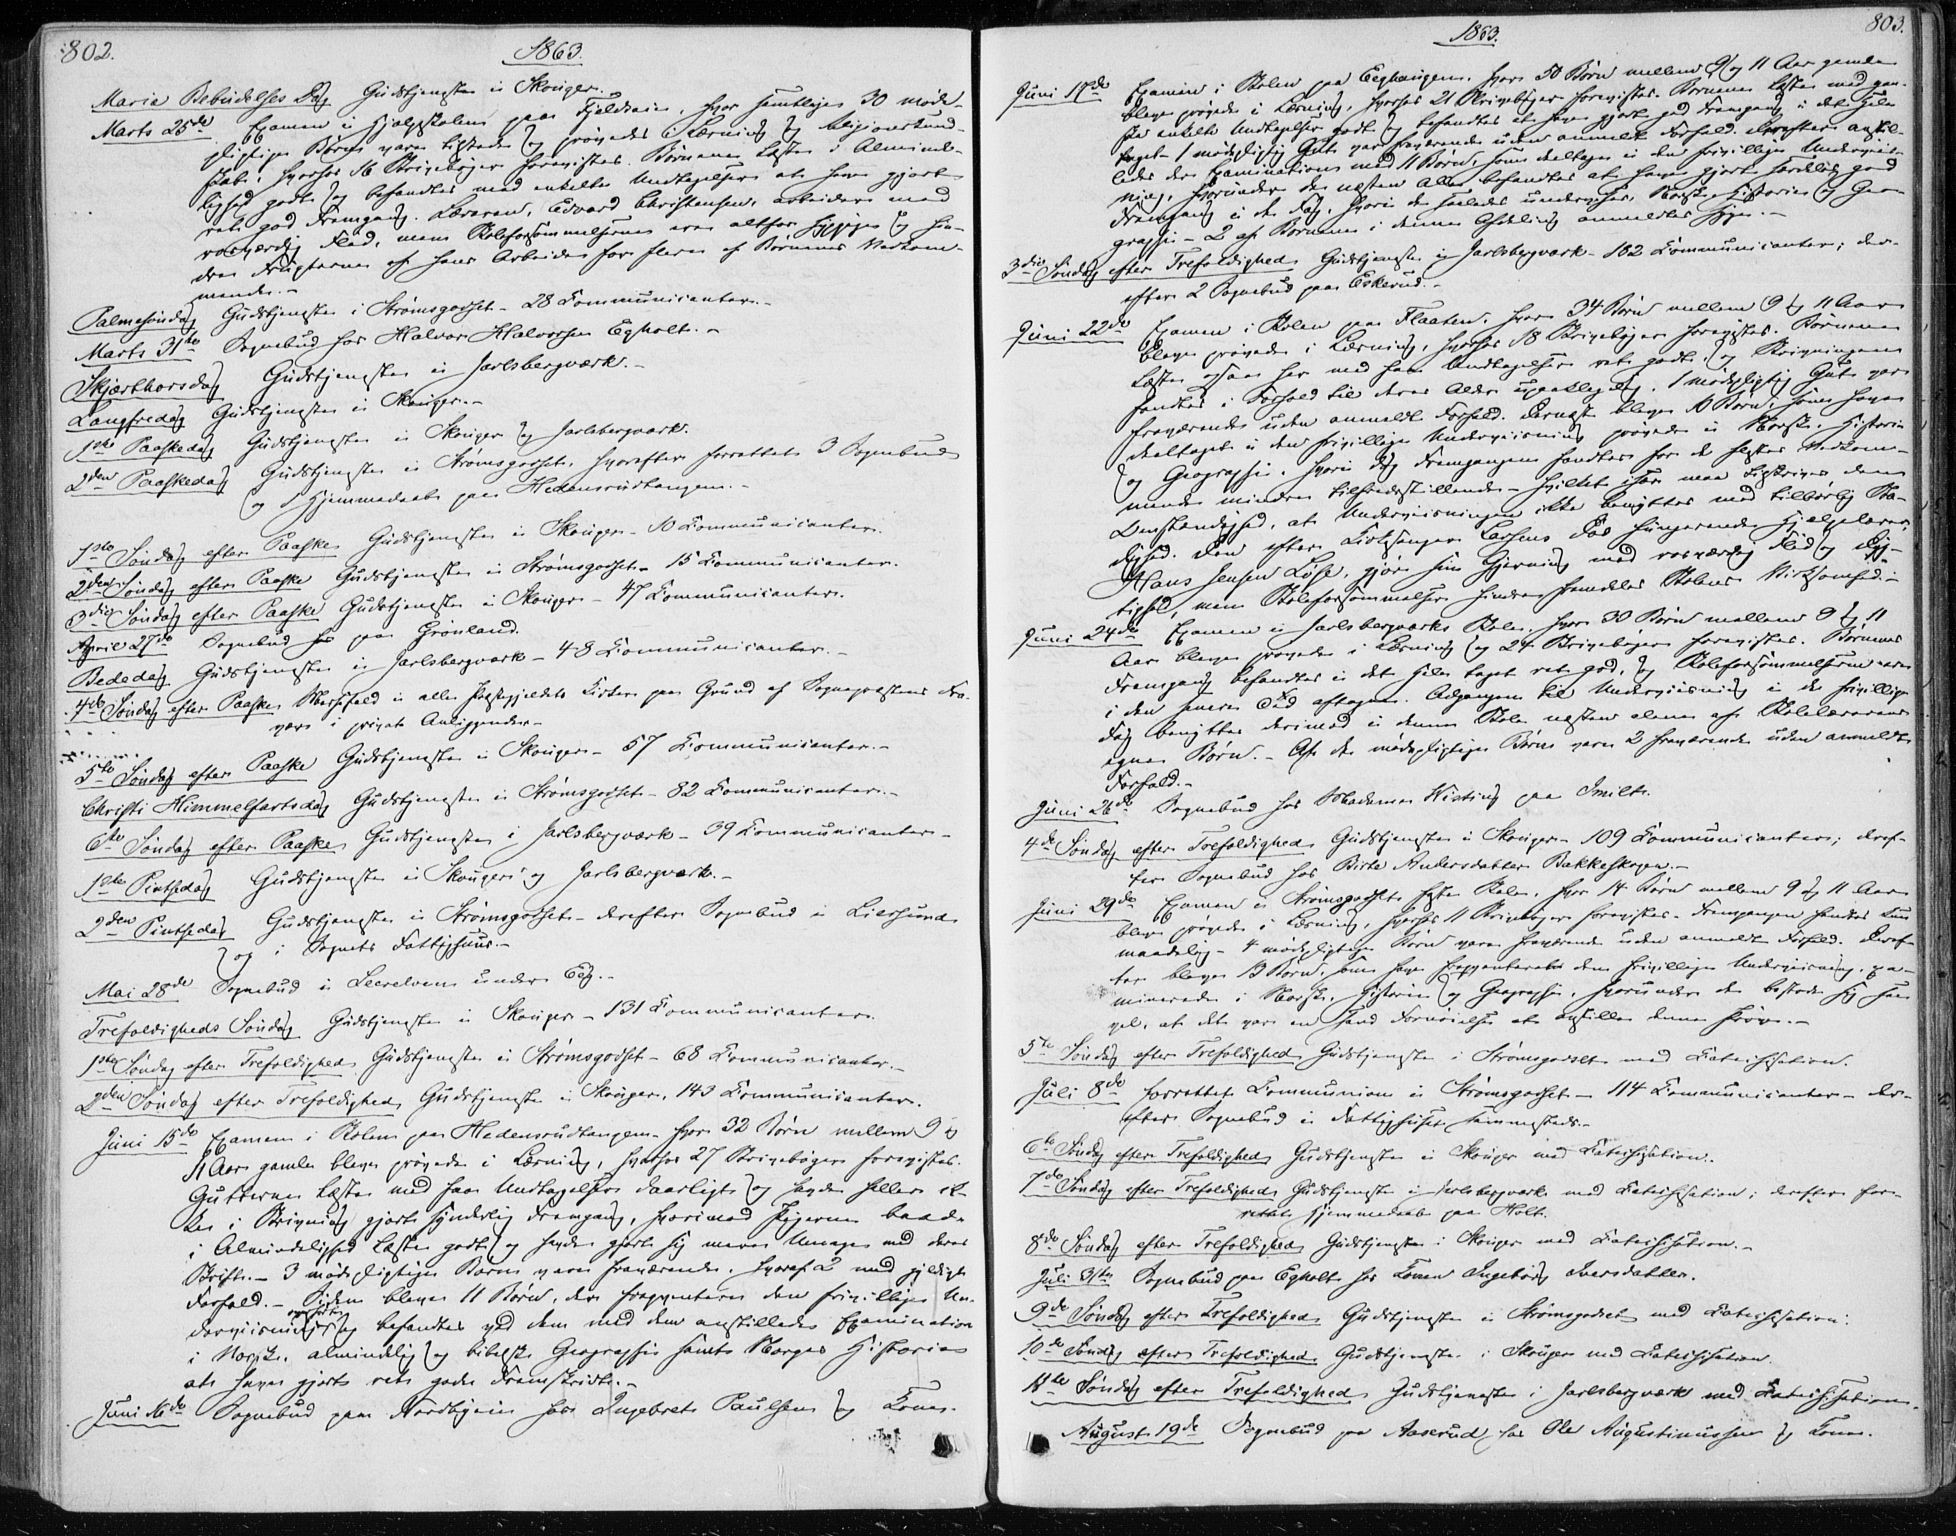 802.
1863.
Maria Bebudelses Dag Gudstjeneste i Skouger.
Marts 25de Examen i Hjælpskolen paa Fjeldsein hvor samtlige 30 møde-
pligtige Børn vare tilstede og prøvedes i Læsning og Religionskund-
skab, hvorhos 16 Skrivebøger forevistes. Børnene læste i Alminde-
lighed godt og befandtes med enkelte Undtagelser at have gjort
ret god Fremgang. Læreren, Edvard Christensen, arbeider med
rosværdig Flid, men Skoleforsømmelserne ere altfor hyppige og hin-
dre Frugterne af hans Arbeide for flere af Børnenes Vedkom-
mende.-
Palmesøndag Gudstjeneste i Strømsgodset - 28 Communicanter.-
Marts 31te Sognebud hos Halvor Halvorsen Egholt.-
Skjærthorsdag Gudstjeneste i Jarlsbergværk.-
Langfredag Gudstjeneste i Skouger.-
1ste Paaskedag Gudstjeneste i Skouger og Jarlsbergværk.
2den Paaskedag Gudstjeneste i Strømsgodset, hvorefter forrettet 3 Sognebud
og 1 Hjemmedaab paa Hedensrudtangen.-
1ste Søndag efter Paaske Gudstjeneste i Skouger - 10 Communicanter.
2den Søndag efter Paaske Gudstjeneste i Strømsgodset - 15 Communicanter.
3die Søndag efter Paaske Gudstjeneste i Skouger - 47 Communicanter.
April 27de Sognebud paa Grønland.
Bededag Gudstjeneste i Jarlsbergværk - 48 Communicanter.-
4de Søndag efter Paaske Messefald i alle Præstegjeldets Kirker paa Grund af Sognepræstens Fra-
være i privat Anliggender.-
5te Søndag efter Paaske Gudstjeneste i Skouger - 57 Communicanter.-
Christi Himmelfartsdag Gudstjeneste i Strømsgodset - 82 Communicanter.-
6te Søndag efter Paaske Gudstjeneste i Jarlsbergværk - 39 Communicanter.-
1ste Pintsedag Gudstjeneste i Skouger og Jarlsbergværk.-
2den Pintsedag Gudstjeneste i Strømsgodset - derefter Sognebud i Liersund
og i Sognets Fattighuus.-
Mai 28de Sognebud i Leerelven under Eeg.-
Trefoldigheds Søndag Gudstjeneste i Skouger - 131 Communicanter.
1ste Søndag efter Trefoldighed Gudstjeneste i Strømsgodset - 68 Communicanter.-
2den Søndag efter Trefoldighed Gudstjeneste i Skouger, 143 Communicanter.
Juni 15de Examen i Skolen paa Hedensrudtangen, hvor 32 Børn mellem 9 og
11 Aar gamle bleve prøvede i Læsning, hvorhos 27 Skrivebøger forevistes.
Gutterne læste med faa Undtagelser daarligt og havde heller ik-
ke i Skrivning gjort synderlig Fremgang, hvorimod Pigerne baade
i Almindelighed læste godt og havde gjort sig mere Umage med deres
Skrift.- 3 mødepligtige Børn vare fraværende, hvoraf 2 med gyldigt
Forfald.- Siden bleve 11 Børn, der frequentere den frivillige Un-
derviisning overhørte og befandtes ved den med dem anstillede Examination
i Norsk, almindelig og bibelsk Geographie samt Norges Historie
at have gjort ret gode Fremskridt.-
Juni 16de Sognebud paa Nordbyeie hos Ingebret Paulsen og Kone.
803.
1863.
Juni 17de Examen i Skolen paa Eeghaugen, hvor 50 Børn mellem 9 og 11 Aar gamle
bleve prøvede i Læsning, hvorhos 21 Skrivebøger forevistes. Børnene læste med gan-
ske enkelte Undtagelser godt og befandtes at have gjort god Fremgang i det Hele
taget. 1 mødepligtig Gut var fraværende uden anmeldt Forfald. Derefter anstil-
ledes der Examination med 11 Børn, som deeltage i den frivillige Underviis-
ning, hvorunder de næsten Alle befandtes at have gjort særdeles god
Fremgang i de Fag, hvori de saaledes undervises, Norsk, Historie og Geo-
graphie - 2 af Børnene i denne Afdeling anmeldtes syge.-
3die Søndag efter Trefoldighed Gudstjeneste i Jarlsbergværk - 102 Communicanter; der-
efter 2 Sognebud paa Eskerud.-
Juni 22de Examen i Skolen paa Flaaten, hvor 34 Børn mellem 9 og 11 Aar
bleve prøvede i Læsning, hvorhos 18 Skrivebøger forevistes. Børnene
læste ogsaa her med faa Undtagelser ret godt, og Skrivningen
fandtes i Forhold til deres Alder upaaklagelig. 1 mødepligtig Gut var
fraværende uden anmeldt Forfald. Dernæst bleve 10 Børn, som have
deeltaget i den frivillige Underviisning prøvede i Norsk, Historie
og Geographie, hvori dog Fremgangen fandtes for de flestes Vedkom-
mende mindre tilfredsstillende - hvilket især maa tilskrives den
Omstændighed, at Underviisningen ikke benyttes med tilbørlig Sta-
dighed. Den efter Kirkesanger Larsens Død fungerende Hjelpelærer,
Hans Jensen Løse, gjør sin Gjerning med rosværdig Flid og Dyg-
tighed, men Skoleforsømmelser hindre fremdeles Skolens Virksomhed.-
Juni 24de Examen i Jarlsbergværks Skole, hvor 30 Børn mellem 8 og 11
Aar bleve prøvede i Læsning og 24 Skrivebøger forevistes. Børnenes
Fremgang befandtes i det Hele taget ret god, og Skoleforsømmelserne ere
i den senere Tid aftagne. Adgangen til Underviisning i de frivillige
Fag benyttes derimod i denne Skole næsten alene af Skolelærerens
egne Børn.- Af de mødepligtige Børn vare 2 fraværende uden anmeldt
Forfald.-
Juni 26de Sognebud hos Madame Wisting paa Smilt.
4de Søndag efter Trefoldighed Gudstjeneste i Skouger - 109 Communicanter; deref-
ter Sognebud hos Birte Andersdatter Bakkeskogen.-
Juni 29de Examen i Strømsgodsets faste Skole, hvor 14 Børn mellem 9 og 11 Aar
bleve prøvede i Læsning, hvorhos 11 Skrivebøger forevistes - Fremgangen fandtes kun
maadelig - 4 mødepligtige Børn vare fraværende uden anmeldt Forfald. Deref-
ter bleve 13 Børn, som have frequenteret den frivillige Underviisning, exa-
minerede i Norsk, Historie og Geographie, hvorunder de bestode sig saa
vel, at det var en sand Fornøielse at anstille denne Prøve.-
5te Søndag efter Trefoldighed Gudstjeneste i Strømsgodset med Catechisation.
Juli 8de forrettet Communion i Strømsgodset - 114 Communicanter - der-
efter Sognebud i Fattighuset sammesteds.-
6te Søndag efter Trefoldighed Gudstjeneste i Skouger med Catechisation.
7de Søndag efter Trefoldighed Gudstjeneste i Jarlsbergværk med Catechisation; derefter for-
rettet Hjemmedaab paa Holt.
8de Søndag efter Trefoldighed Gudstjeneste i Skouger med Catechisation.-
Juli 31te Sognebud paa Egholt hos Konen Ingeborg Iversdatter.
9de Søndag efter Trefoldighed Gudstjeneste i Strømsgodset med Catechisation.
10de Søndag efter Trefoldighed Gudstjeneste i Skouger med Catechisation.
11te Søndag efter Trefoldighed Gudstjeneste i Jarlsbergværk med Catechisation.
August 19de Sognebud paa Aaserud hos Ole Augustinussen og Kone.